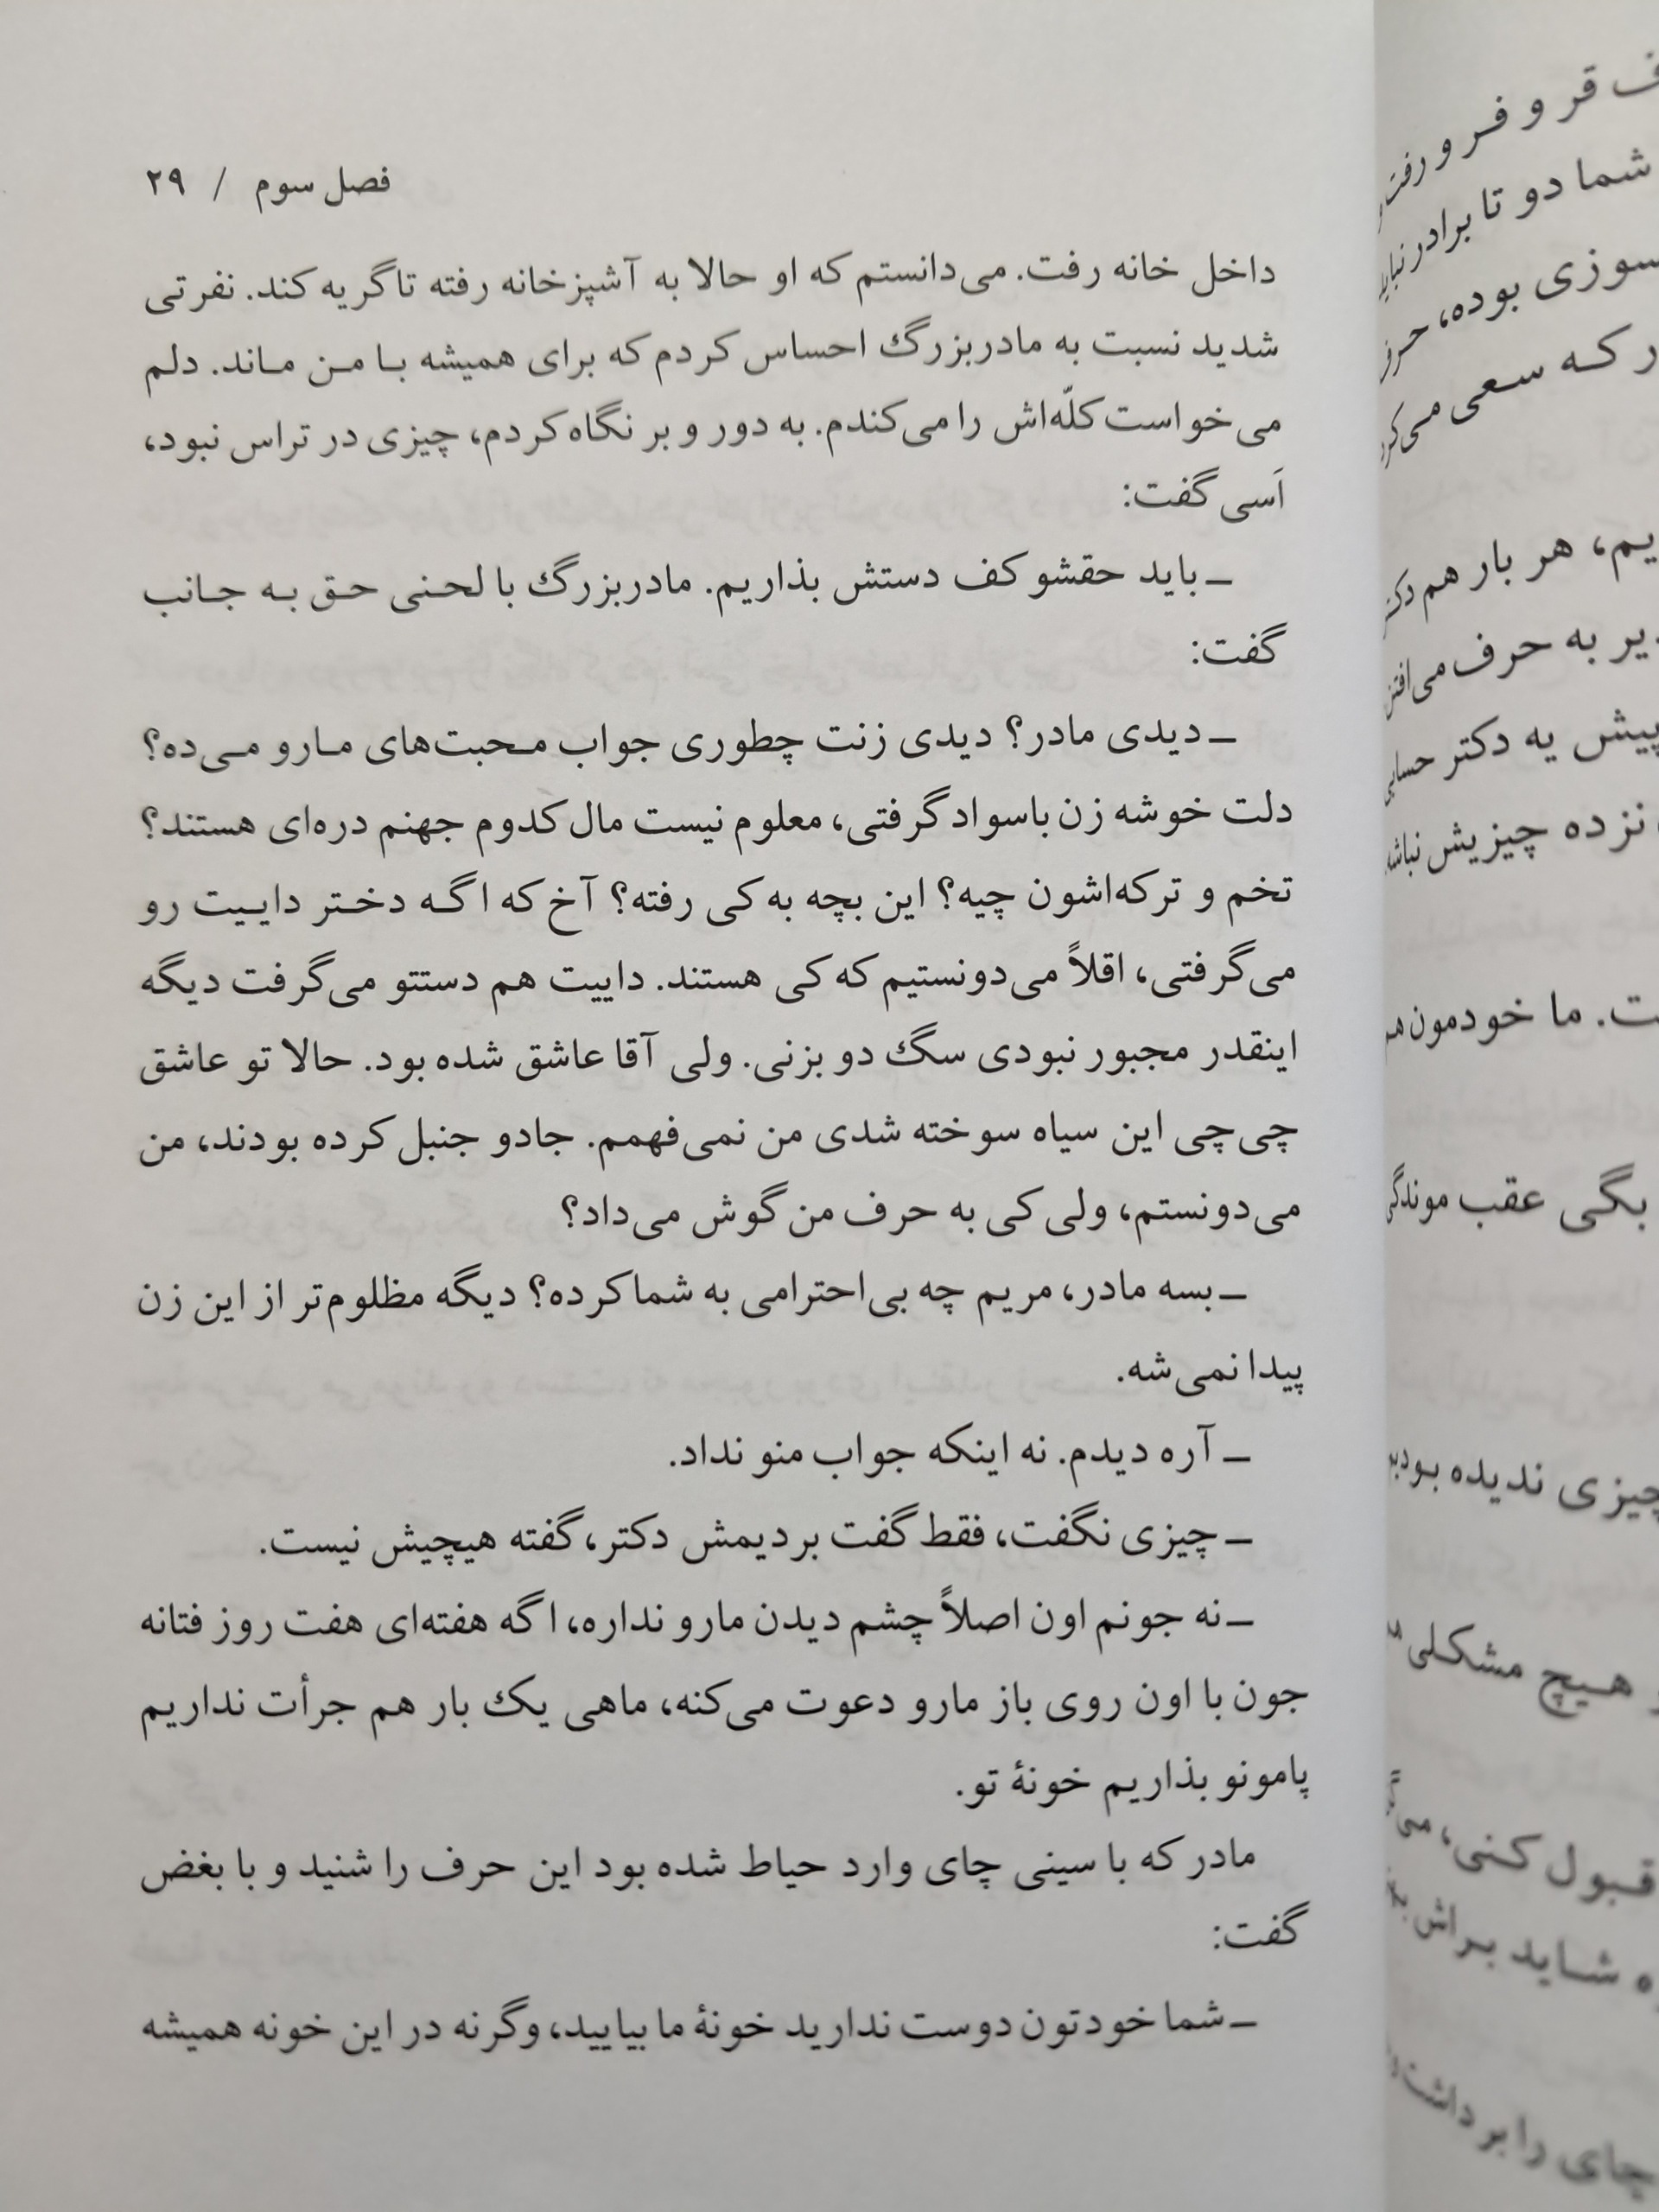 فصل سوم / ۲۹
داخل خانه رفت. می‌دانستم که او حالا به آشپزخانه رفته تا گریه کند. نفرتی
شدید نسبت به مادربزرگ احساس کردم که برای همیشه با من ماند. دلم
می‌خواست کلّه‌اش را می‌کندم. به دور و بر نگاه کردم، چیزی در تراس نبود،
اَسی گفت:
ـ باید حقشو کف دستش بذاریم. مادربزرگ با لحنی حق به جانب
گفت:
ـ دیدی مادر؟ دیدی زنت چطوری جواب محبت‌های مارو می‌ده؟
دلت خوشه زن باسواد گرفتی، معلوم نیست مال کدوم جهنم دره‌ای هستند؟
تخم و ترکه‌اشون چیه؟ این بچه به کی رفته؟ آخ که اگه دختر داییت رو
می‌گرفتی، اقلاً می‌دونستیم که کی هستند. داییت هم دستتو می‌گرفت دیگه
اینقدر مجبور نبودی سگ دو بزنی. ولی آقا عاشق شده بود. حالا تو عاشق
چی‌چی این سیاه سوخته شدی من نمی‌فهمم. جادو جنبل کرده بودند، من
می‌دونستم، ولی کی به حرف من گوش می‌داد؟
ـ بسه مادر، مریم چه بی‌احترامی به شما کرده؟ دیگه مظلوم‌تر از این زن
پیدا نمی‌شه.
ـ آره دیدم. نه اینکه جواب منو نداد.
ـ چیزی نگفت، فقط گفت بردیمش دکتر، گفته هیچیش نیست.
ـ نه جونم اون اصلاً چشم دیدن مارو نداره، اگه هفته‌ای هفت روز فتانه
جون با اون روی باز مارو دعوت می‌کنه، ماهی یک بار هم جرأت نداریم
پامونو بذاریم خونهٔ تو.
مادر که با سینی چای وارد حیاط شده بود این حرف را شنید و با بغض
گفت:
ـ شما خودتون دوست ندارید خونهٔ ما بیایید، وگرنه در این خونه همیشه
قر و فر و رفت
شما دو تا برادر
سوزی بوده، حرف
که سعی
هر بار هم
به حرف
پیش یه دکتر
نزده چیزیش
ما خودمون
بگی عقب
چیزی ندیده
هیچ مشکلی
قبول کنی،
شاید براش
چای را برداشت